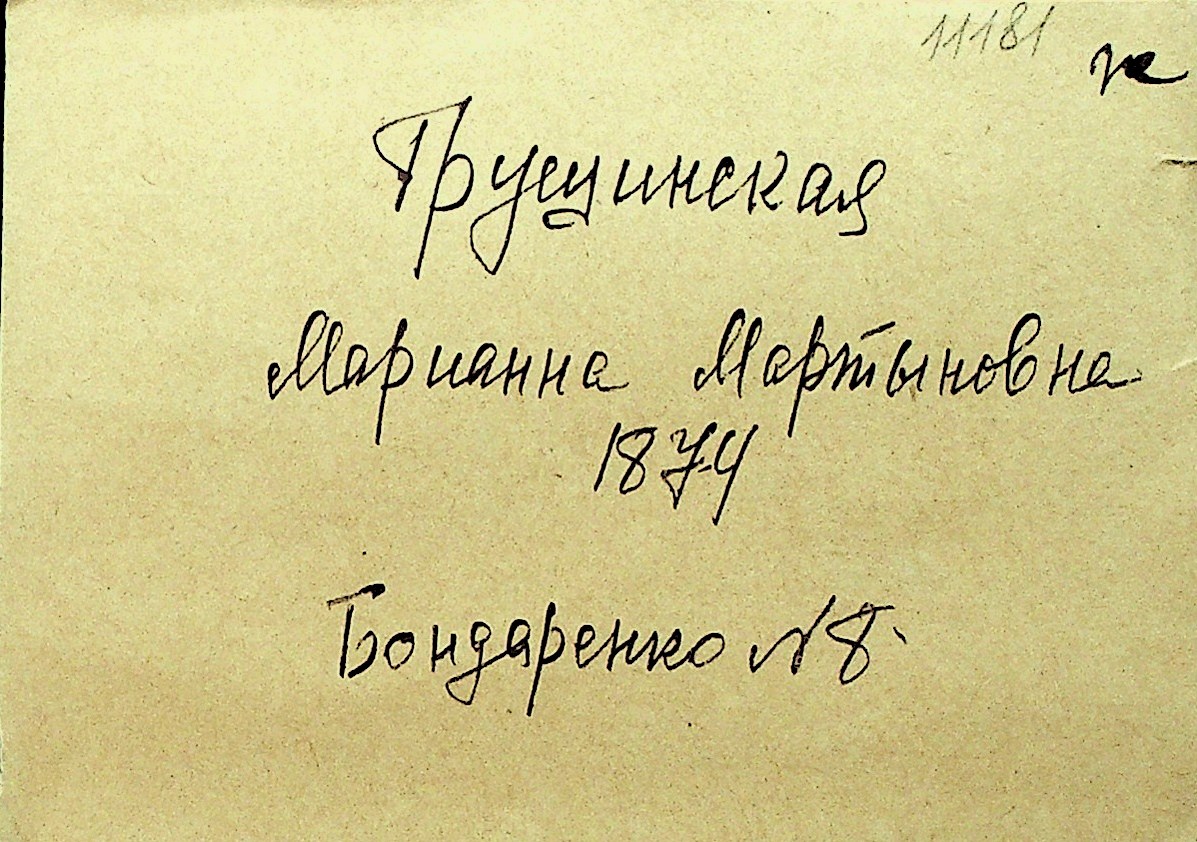 11181
Трущинская
Марианна Мартыновна
1874
Бондаренко N 8